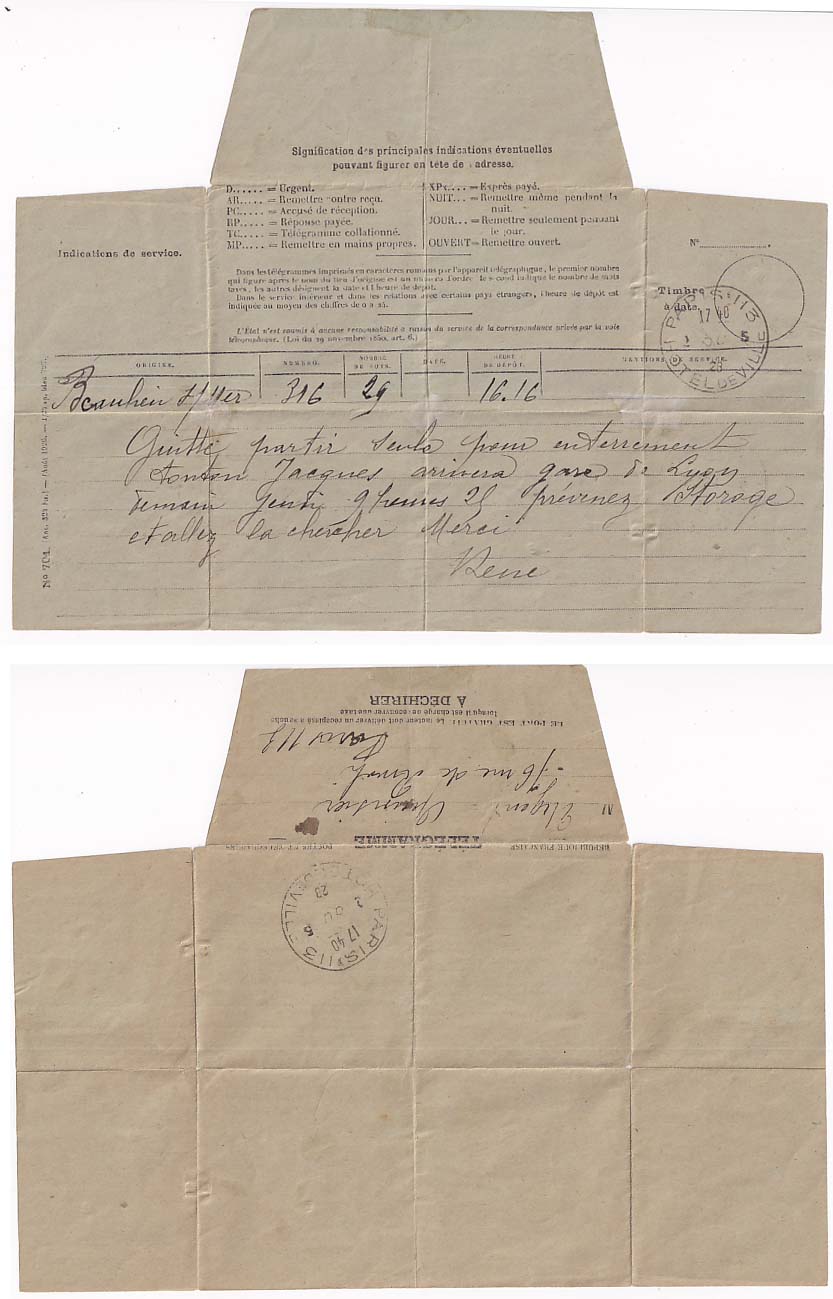 Signification des principales indications éventuelles
pouvant figurer en tête de l'adresse.
D...... = Urgent.
AR..... = Remettre contre reçu.
PC..... = Accusé de réception.
RP..... = Réponse payée.
TC..... = Télégramme collationné.
MP..... = Remettre en mains propres.
XPx.... = Exprès payé.
NUIT... = Remettre même pendant la
nuit.
JOUR... = Remettre seulement pendant
le jour.
OUVERT = Remettre ouvert.
Indications de service.
N° ..................
Timbre
à date.
Dans les télégrammes imprimés en caractères romains par l'appareil télégraphique, le premier nombre
qui figure après le nom du lieu d'origine est un numéro d'ordre le second indique le nombre de mots
taxés, les autres désignent la date et l'heure de dépôt.
Dans le service intérieur et dans les relations avec certains pays étrangers, l'heure de dépôt est
indiquée au moyen des chiffres de 0 à 24.
L'État n'est soumis à aucune responsabilité à raison du service de la correspondance privée par la voie
télégraphique. (Loi du 29 novembre 1850, art. 6.)
PARIS 113
17 40
5
28
HOTEL DE VILLE
ORIGINE. NUMÉRO. NOMBRE DE MOTS. DATE. HEURE DE DÉPÔT. MENTIONS DE SERVICE.
Beaulieu s/Mer 316 29 16.16
Guitte partir seule pour enterrement
tonton Jacques arrivera gare de Lyon
demain jeudi 9 heures 25 prévenez
et allez la chercher Merci
René
N° 701.
RÉPUBLIQUE FRANÇAISE
POSTES ET TÉLÉGRAPHES
TÉLÉGRAMME
M
76 rue de
Paris
LE PORT EST GRATUIT. Le facteur doit délivrer un récépissé à souche
lorsqu'il est chargé de recouvrer une taxe
À DÉCHIRER
PARIS 113
17 40
5
28
HOTEL DE VILLE